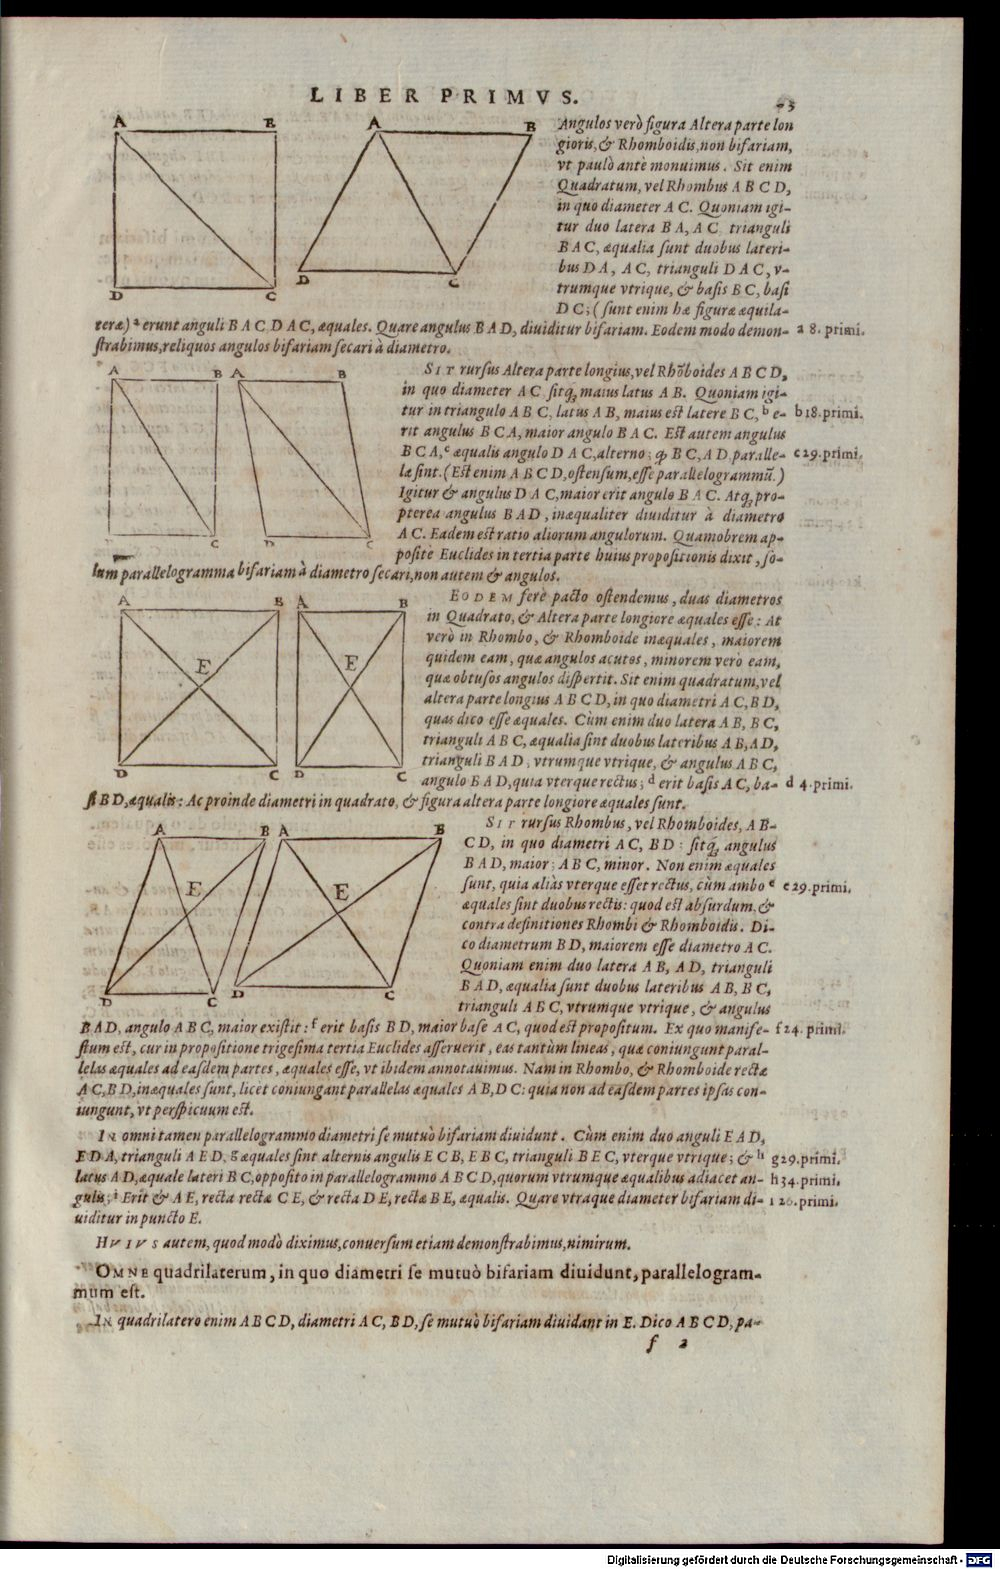 LIBER PRIMVS.
A B A B
D C D C
Angulos verò figura Altera parte lon
gioris, & Rhomboidis, non bifariam,
vt paulò antè monuimus. Sit enim
Quadratum, vel Rhombus A B C D,
in quo diameter A C. Quoniam igi-
tur duo latera B A, A C trianguli
B A C, æqualia sunt duobus lateri-
bus D A, A C, trianguli D A C, v-
trumque vtrique, & basis B C, basi
D C; (sunt enim hæ figuræ æquila-
teræ) a erunt anguli B A C, D A C, æquales. Quare angulus B A D, diuiditur bifariam. Eodem modo demon- a 8. primi.
strabimus, reliquos angulos bifariam secari à diametro.
A B A B
D C D C
SIT rursus Altera parte longius, vel Rhōboides A B C D,
in quo diameter A C sitq; maius latus A B. Quoniam igi-
tur in triangulo A B C, latus A B, maius est latere B C, b e- b 18. primi.
rit angulus B C A, maior angulo B A C. Est autem angulus
B C A, c æqualis angulo D A C, alterno; ꝙ B C, A D paralle- c 29. primi.
læ sint. (Est enim A B C D, ostensum, esse parallelogrammū.)
Igitur & angulus D A C, maior erit angulo B A C. Atq; pro-
pterea angulus B A D, inæqualiter diuiditur à diametro
A C. Eadem est ratio aliorum angulorum. Quamobrem ap-
positè Euclides in tertia parte huius propositionis dixit, so-
lum parallelogramma bifariam à diametro secari, non autem & angulos.
A B A B
E E
D C D C
EODEM ferè pacto ostendemus, duas diametros
in Quadrato, & Altera parte longiore æquales esse: At
verò in Rhombo, & Rhomboide inæquales, maiorem
quidem eam, quæ angulos acutos, minorem verò eam,
quæ obtusos angulos dispertit. Sit enim quadratum, vel
altera parte longius A B C D, in quo diametri A C, B D,
quas dico esse æquales. Cùm enim duo latera A B, B C,
trianguli A B C, æqualia sint duobus lateribus A B, A D,
trianguli B A D, vtrumque vtrique, & angulus A B C,
angulo B A D, quia vterque rectus; d erit basis A C, ba- d 4. primi.
si B D, æqualis: Ac proinde diametri in quadrato, & figura altera parte longiore æquales sunt.
A B A B
E E
D C D C
SIT rursus Rhombus, vel Rhomboides, A B-
C D, in quo diametri A C, B D: sitq; angulus
B A D, maior; A B C, minor. Non enim æquales
sunt, quia aliàs vterque esset rectus, cùm ambo e e 29. primi.
æquales sint duobus rectis: quod est absurdum, &
contra definitiones Rhombi & Rhomboidis. Di-
co diametrum B D, maiorem esse diametro A C.
Quoniam enim duo latera A B, A D, trianguli
B A D, æqualia sunt duobus lateribus A B, B C,
trianguli A B C, vtrumque vtrique, & angulus
B A D, angulo A B C, maior existit: f erit basis B D, maior base A C, quod est propositum. Ex quo manife- f 24. primi.
stum est, cur in propositione trigesima tertia Euclides asseruerit, eas tantùm lineas, quæ coniungunt paral-
lelas æquales ad easdem partes, æquales esse, vt ibidem annotauimus. Nam in Rhombo, & Rhomboide rectæ
A C, B D, inæquales sunt, licet coniungant parallelas æquales A B, D C: quia non ad easdem partes ipsas con-
iungunt, vt perspicuum est.
IN omni tamen parallelogrammo diametri se mutuò bifariam diuidunt. Cùm enim duo anguli E A D,
E D A, trianguli A E D, g æquales sint alternis angulis E C B, E B C, trianguli B E C, vterque vtrique; & h g 29. primi.
latus A D, æquale lateri B C, opposito in parallelogrammo A B C D, quorum vtrumque æqualibus adiacet an- h 34. primi.
gulis; i Erit & A E, recta rectæ C E, & recta D E, rectæ B E, æqualis. Quare vtraque diameter bifariam di- i 26. primi.
uiditur in puncto E.
HVIVS autem, quod modò diximus, conuersum etiam demonstrabimus, nimirum.
OMNE quadrilaterum, in quo diametri se mutuò bifariam diuidunt, parallelogram-
mum est.
IN quadrilatero enim A B C D, diametri A C, B D, se mutuò bifariam diuidant in E. Dico A B C D, pa-
f 2
Digitalisierung gefördert durch die Deutsche Forschungsgemeinschaft - DFG